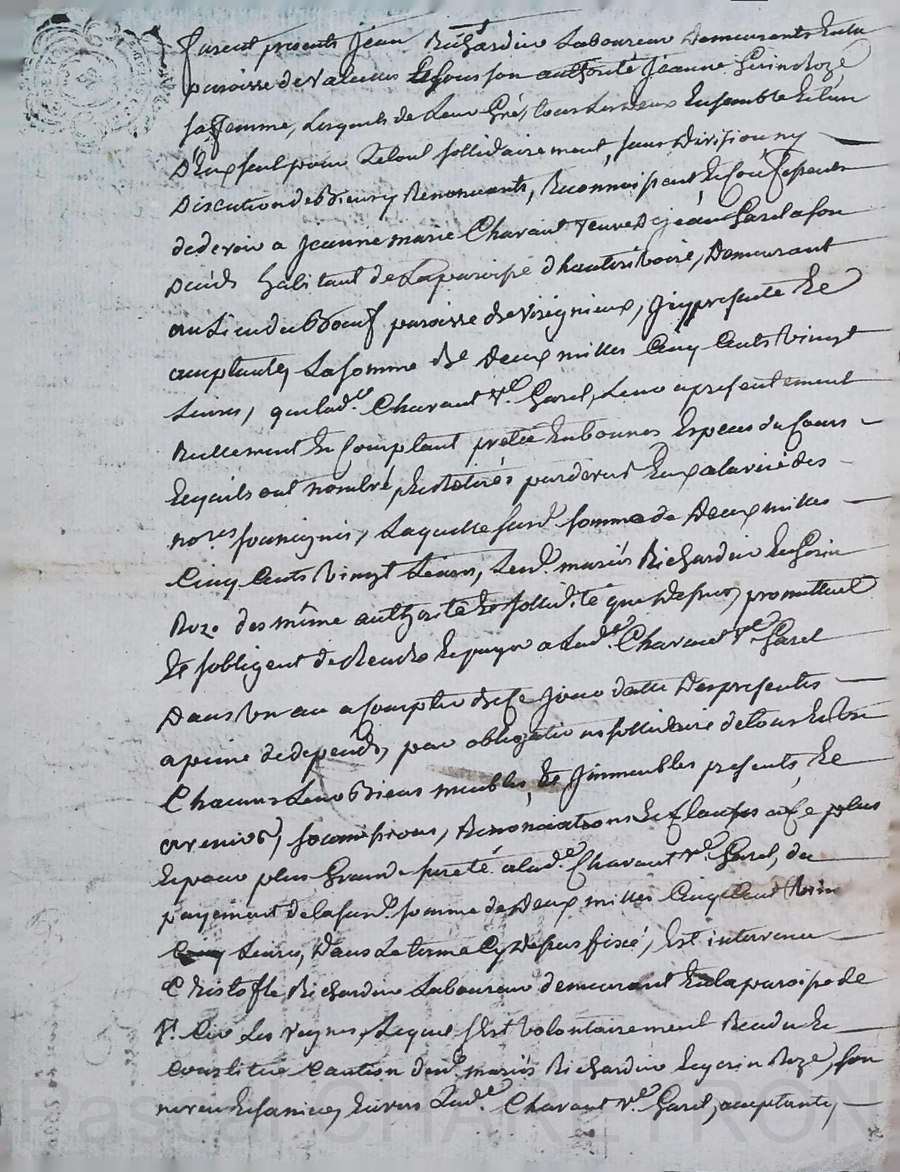 furent presents Jean Richardin Laboureur Demeurants En la
paroisse de Valeilles Et sous son authorité Jeanne Gerin Roze
sa femme, Lesquels de Leur Gré, tous Les deux Ensemble Et L'un
D'Eux seul pour Le tout sollidairement, sans Division ny
Discution de Biens y Renonceants, Reconnoissent Et Confessent
de devoir a Jeanne marie Charaut veuve de jean Garel a son
Decéds habitant de La paroisse d'hauterivoire, Demeurant
au Lieu du Boeuf paroisse de Virigneux, Jcy presente Et
acceptante, La somme de Deux milles Cinq Cents vingt
Livres, que lad.e Charaut v.e Garel, Leur a presentement
Reellement Et Comptant pretée En bonnes Especes du Cours
Lequels ont nombré, Et Retirés pardevers Eux a la vüe des
no.res soussignés, Laquelle susd. somme de Deux milles
Cinq Cents vingt Livres, Lesd. mariés Richardin Et Gerin
Roze des même authorité Et solidité que Dessus, promettent
Et sobligent de Rendre Et payer a Lad.e Charaut v.e Garel
Dans Un an a Compter de Ce Jour datte Des presentes
a peine de depends, par obligations sollidaire de tous Et Un
Chacuns Leurs Biens meubles, Et Jmmeubles presents, Et
avenirs, soumissions, Renonciations Et Clauses a Ce plus
Et pour plus Grande sureté a lad.e Charaut v.e Garel, du
payement de la susd. somme de Deux milles Cinq Cent vin
Livres, Dans Le terme Cy Dessus fixé, Est intervenu
Christofle Richardin Laboureur demeurant En la paroisse de
S.t Cir Les vignes, Lequel s'Est volontairement Rendu Et
Constitué Caution desd. mariés Richardin Et Gerin Roze, son
neveu Et sa niece, Envers Lad.e Charaut v.e Garel, acceptante,
Pascal CHAREYRON